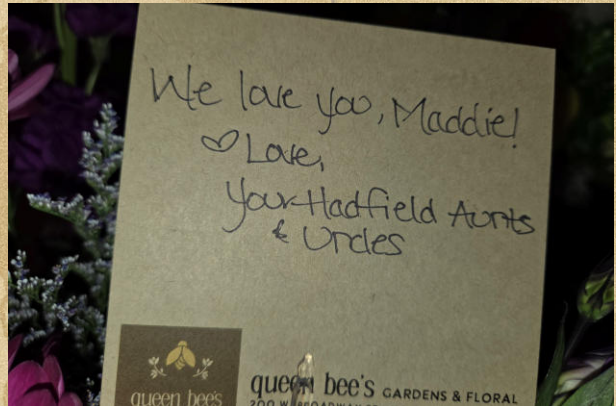 We love you, Maddie!
♡ Love,
Your Hadfield Aunts
& Uncles
queen bee's
queen bee's GARDENS & FLORAL
200 W BROADWAY